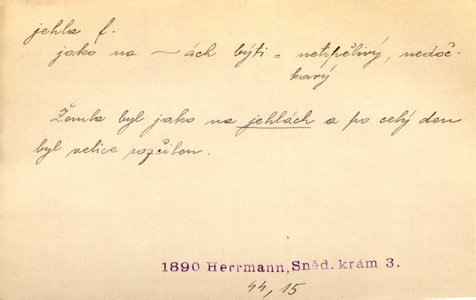 jehla f.
jako na — ách býti = netrpělivý, nedoč-
kavý
Žemla byl jako na jehlách a po celý den
byl velice rozčilen.
1890 Herrmann, Sněd. krám 3.
44, 15